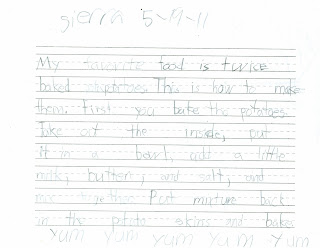 sierra 5-19-11
My favorite food is twice
baked potatoes. This is how to make
them: First you bake the potatoes.
Take out the inside, put
it in a bowl, add a little
milk, butter, and salt, and
mix together. Put mixture back
in the potato skins and bake.
Yum Yum Yum Yum Yum